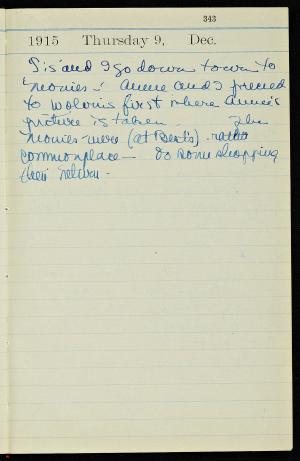 343
1915 Thursday 9, Dec.
Sis and I go down town to
"movies -" Anne and I proceed
to first where Annie's
picture is taken - The
movies were (at Best's) rather
commonplace - do some shopping
then return -